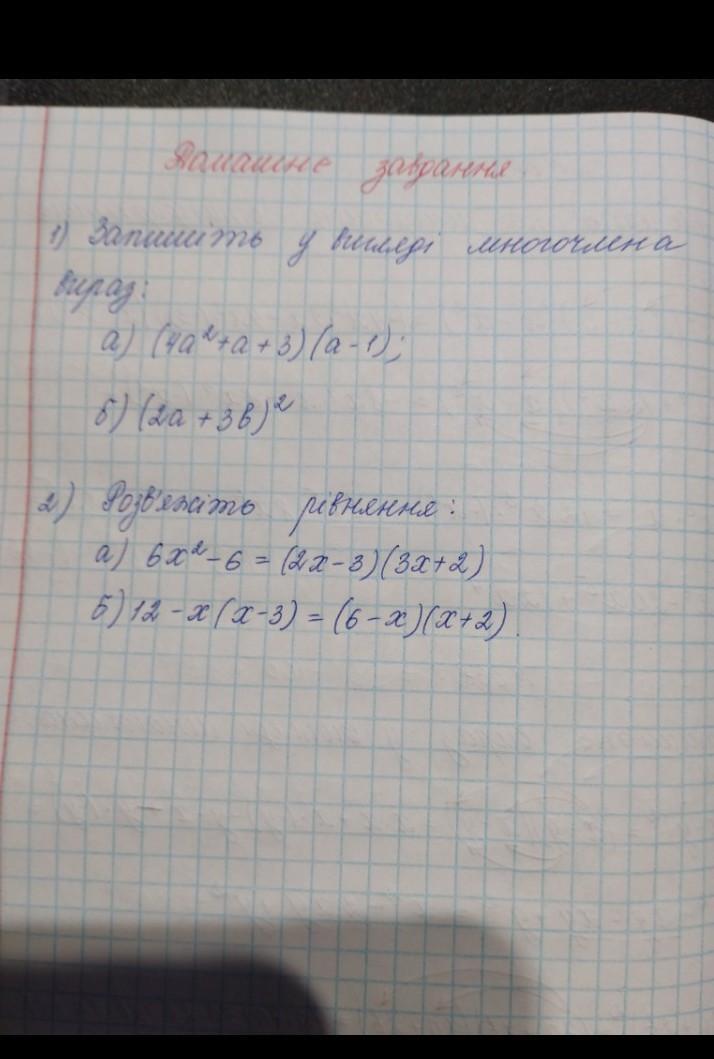 Домашнє завдання
1) Запишіть у вигляді многочлена
вираз:
а) (4a²+a+3)(a-1);
б) (2a+3b)²
2) Розв'яжіть рівняння:
а) 6x²-6 = (2x-3)(3x+2)
б) 12-x(x-3) = (6-x)(x+2).